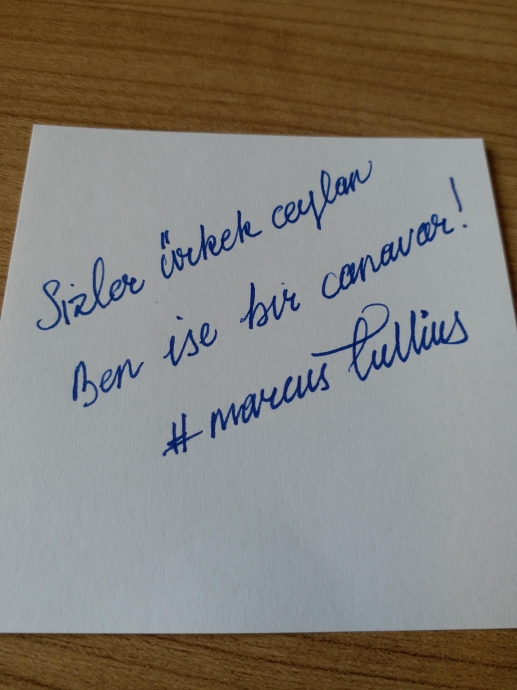 Sizler ürkek ceylan
Ben ise bir canavar!
#marcus tullius